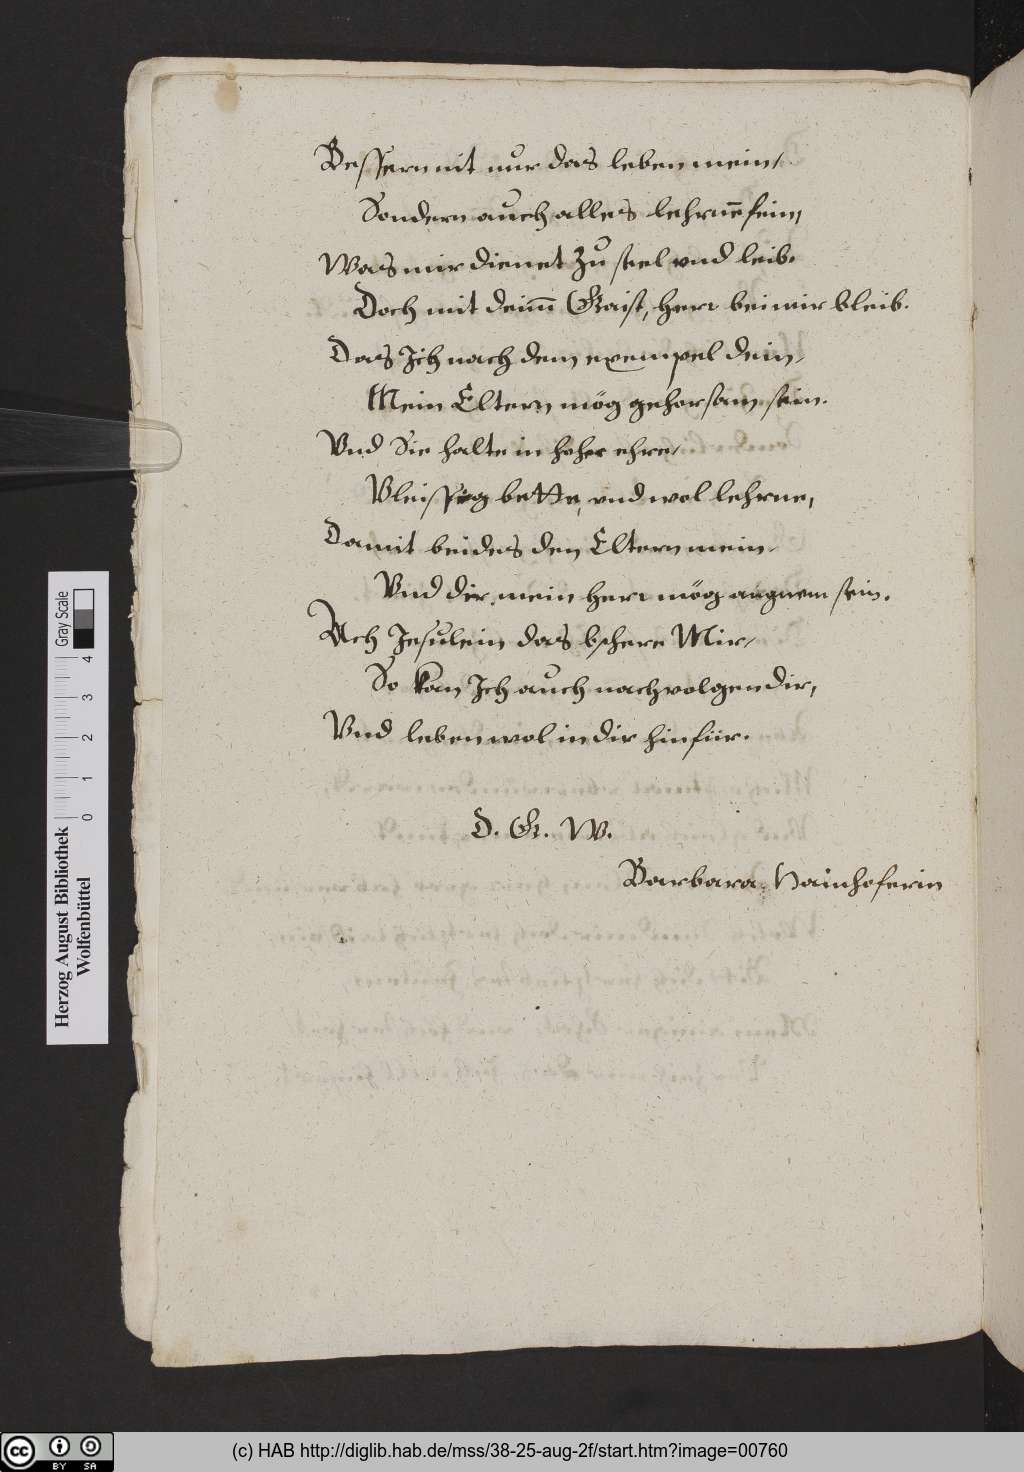 Bessern nit nur das leben mein,
Sondern auch alles lehrne fein,
Was mir dienet zu seel vnd leib.
Doch mit deim̄ Gaist, herr bei mir bleib.
Das Ich nach dem exempel dein,
Mein Eltern mög gehorsam sein.
Vnd Sie halte in hoher ehre,
Vleissig bette, vnd wol lehrne,
Damit beides den Eltern mein,
Vnd dir mein herr mög angnem sein.
Ach Jesulein das bschere Mir,
So kan Ich auch nachvolgen dir,
Vnd leben wol in dir hinfür.
D. G. W.
Barbara Hainhoferin
Herzog August Bibliothek
Wolfenbüttel
Gray Scale
0 1 2 3 4
cc BY SA
(c) HAB http://diglib.hab.de/mss/38-25-aug-2f/start.htm?image=00760